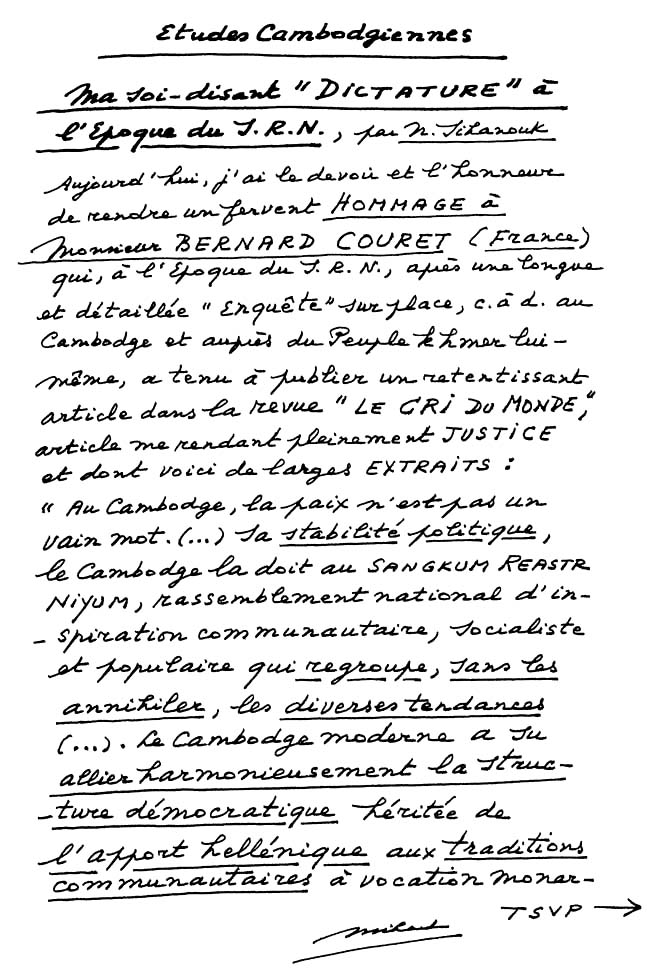 Etudes Cambodgiennes
Ma soi-disant "DICTATURE" à
l'Epoque du S.R.N., par N. Sihanouk
Aujourd'hui, j'ai le devoir et l'honneur
de rendre un fervent HOMMAGE à
Monsieur BERNARD COURET (France)
qui, à l'Epoque du S.R.N., après une longue
et détaillée "Enquête" sur place, c. à d. au
Cambodge et auprès du Peuple khmer lui-
même, a tenu à publier un retentissant
article dans la revue "LE CRI DU MONDE",
article me rendant pleinement JUSTICE
et dont voici de larges EXTRAITS :
"Au Cambodge, la paix n'est pas un
vain mot. (...) Sa stabilité politique,
le Cambodge la doit au SANGKUM REASTR
NIYUM, rassemblement national d'in-
- spiration communautaire, socialiste
et populaire qui regroupe, sans les
annihiler, les diverses tendances
(...). Le Cambodge moderne a su
allier harmonieusement la struc-
-ture démocratique héritée de
l'apport hellénique aux traditions
communautaires à vocation monar-
TSVP →